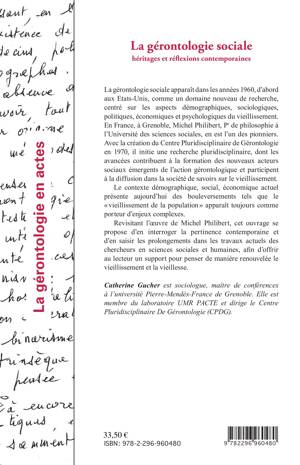 La gérontologie sociale
héritages et réflexions contemporaines
La gérontologie sociale apparaît dans les années 1960, d'abord
aux Etats-Unis, comme un domaine nouveau de recherche,
centré sur les aspects démographiques, sociologiques,
politiques, économiques et psychologiques du vieillissement.
En France, à Grenoble, Michel Philibert, Pr de philosophie à
l'Université des sciences sociales, en est l'un des pionniers.
Avec la création du Centre Pluridisciplinaire de Gérontologie
en 1970, il initie une recherche pluridisciplinaire, dont les
avancées contribuent à la formation des nouveaux acteurs
sociaux émergents de l'action gérontologique et participent
à la diffusion dans la société de savoirs sur le vieillissement.
Le contexte démographique, social, économique actuel
présente aujourd'hui des bouleversements tels que le
« vieillissement de la population » apparaît toujours comme
porteur d'enjeux complexes.
Revisitant l'œuvre de Michel Philibert, cet ouvrage se
propose d'en interroger la pertinence contemporaine et
d'en saisir les prolongements dans les travaux actuels des
chercheurs en sciences sociales et humaines, afin d'offrir
au lecteur un support pour penser de manière renouvelée le
vieillissement et la vieillesse.
Catherine Gucher est sociologue, maître de conférences
à l'université Pierre-Mendès-France de Grenoble. Elle est
membre du laboratoire UMR PACTE et dirige le Centre
Pluridisciplinaire De Gérontologie (CPDG).
La gérontologie en actes
existence de
absence
voir, tout
binarisme
pensée
à encore
33,50 €
ISBN: 978-2-296-960480
9 782296 960480